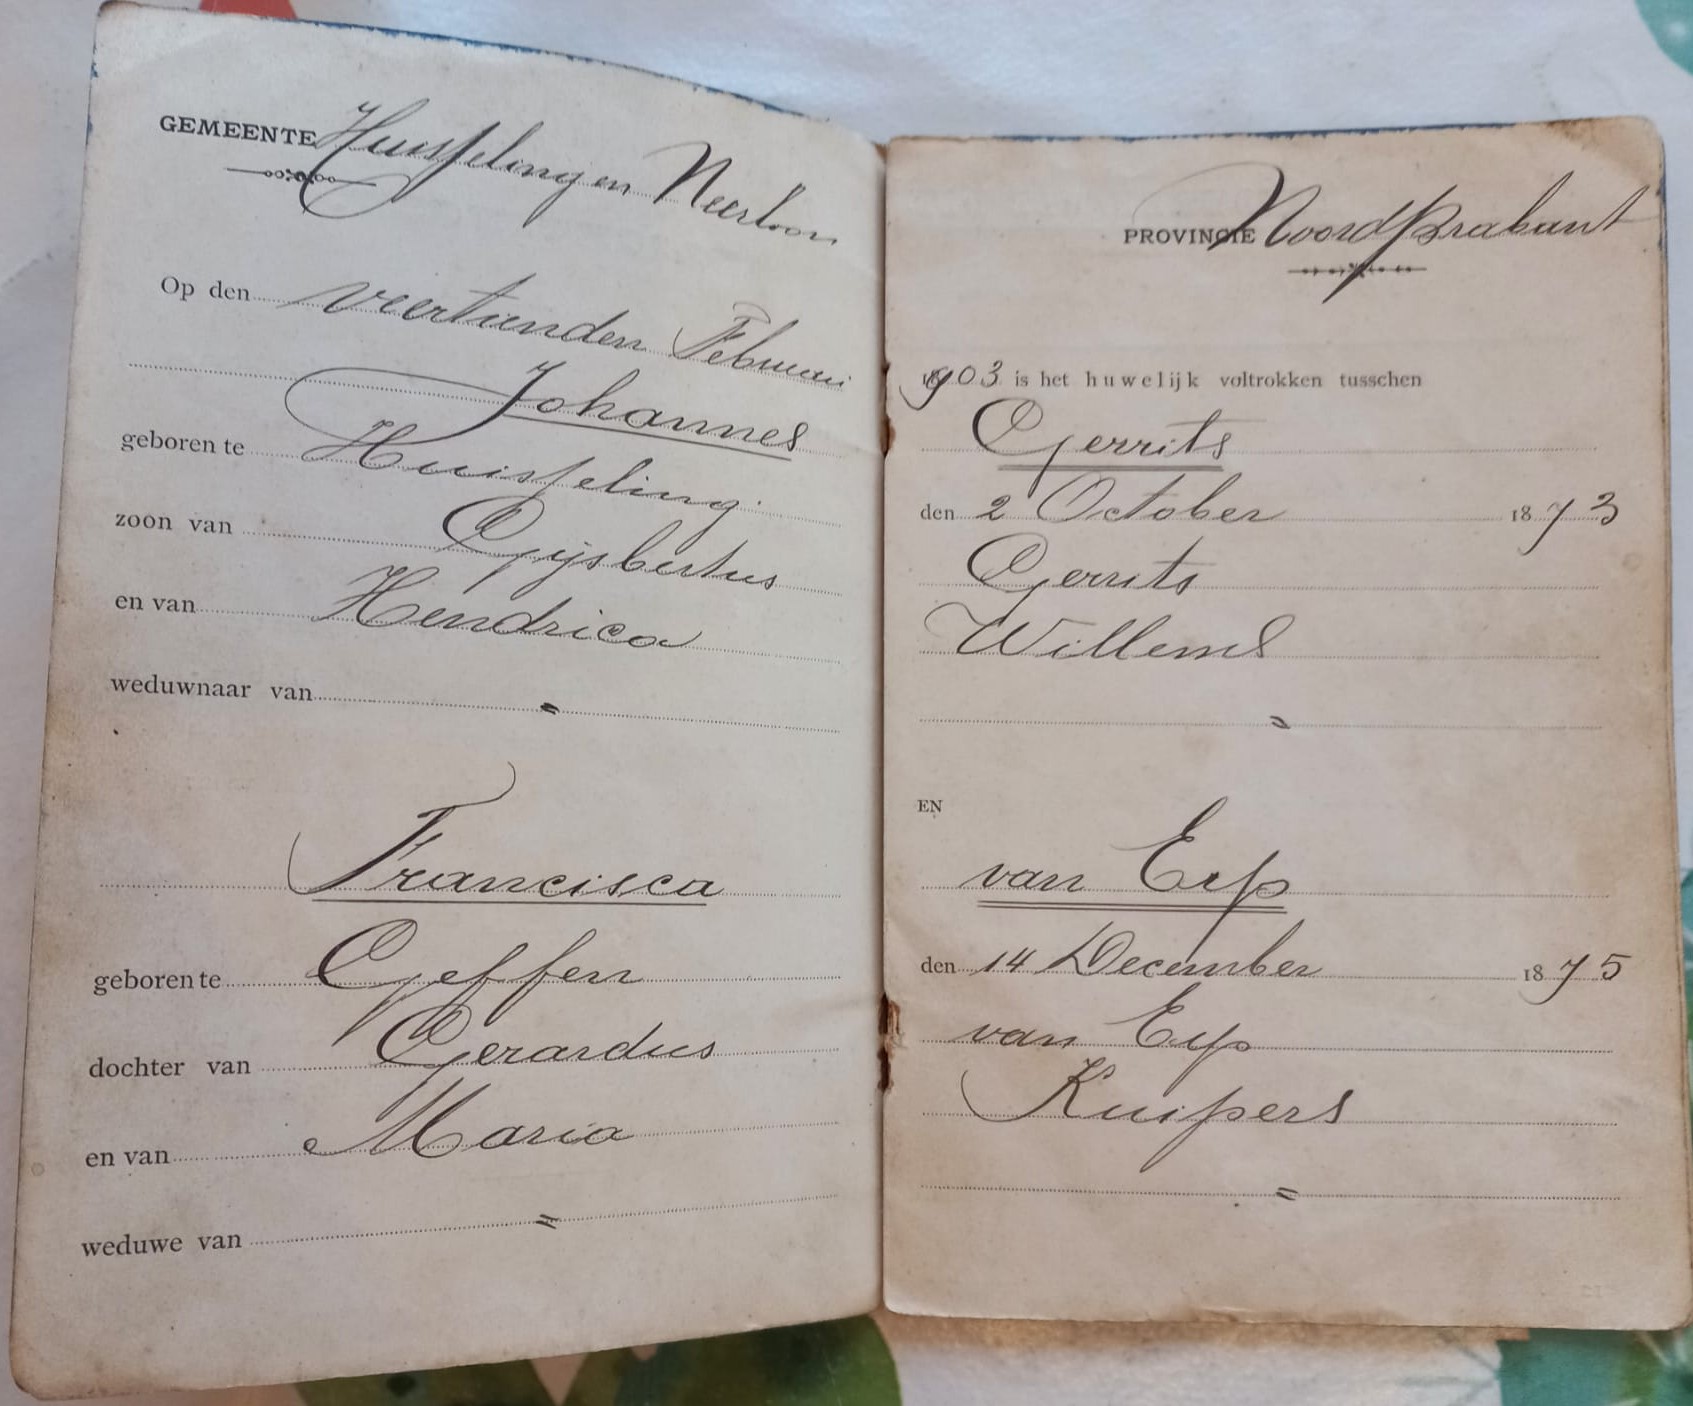 GEMEENTE Huisseling en Neerloon
Op den veertienden Februari
Johannes
geboren te Huisseling
zoon van Gijsbertus
en van Hendrica
weduwnaar van "
Francisca
geboren te Geffen
dochter van Gerardus
en van Maria
weduwe van "
PROVINCIE Noord Brabant
1903 is het huwelijk voltrokken tusschen
Gerrits
den 2 October 1873
Gerrits
Willems
"
EN
van Erp
den 14 December 1875
van Erp
Kuipers
"